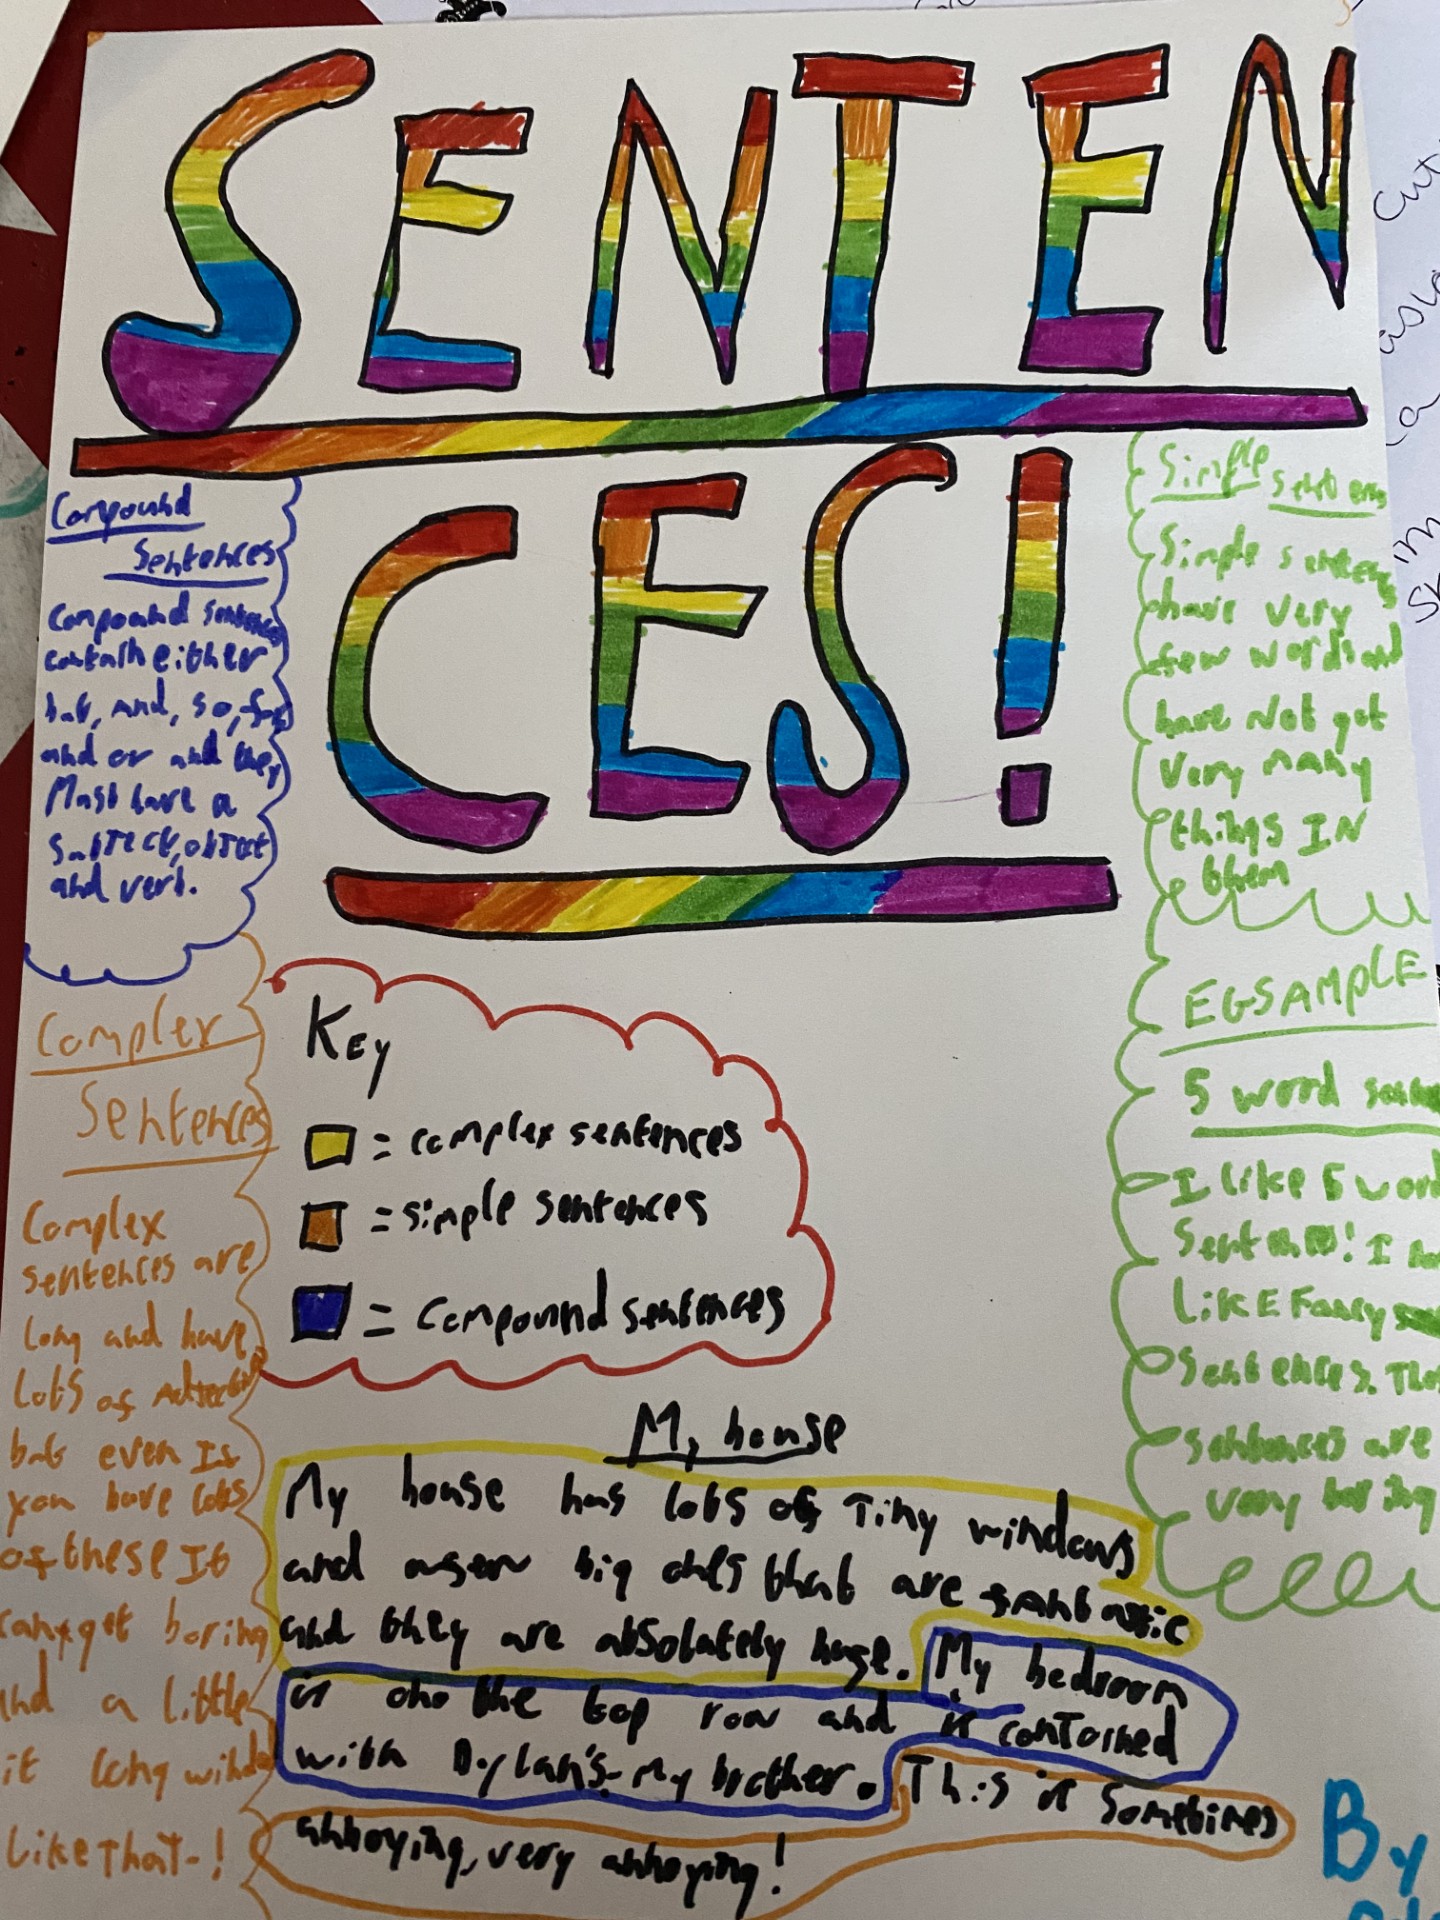 SENTEN
CES!
Compound
Sentences
Compound sentences
contain either
but, and, so, for
and or and they
Must have a
SubJeck, obJect
and verb.
Complex
Sentences
Complex
sentences are
long and have
Lots of
but even If
you have lots
of these It
get boring
and a little
it long winded
Like That-!
Key
= complex sentences
= simple sentences
= compound sentences
My house
My house has lots of Tiny windows
and big ones that are fantastic
and they are absolutely huge. My bedroom
is on the top row and is
with Dylan's-My brother. This is sometimes
annoying, very annoying!
Simple
Simple sentences
have very
few words and
have Not got
very many
things IN
them
EGSAMPLE
5 word
I like 5 word
I
LikE Fancy
sentences.
sentences are
very boring
By